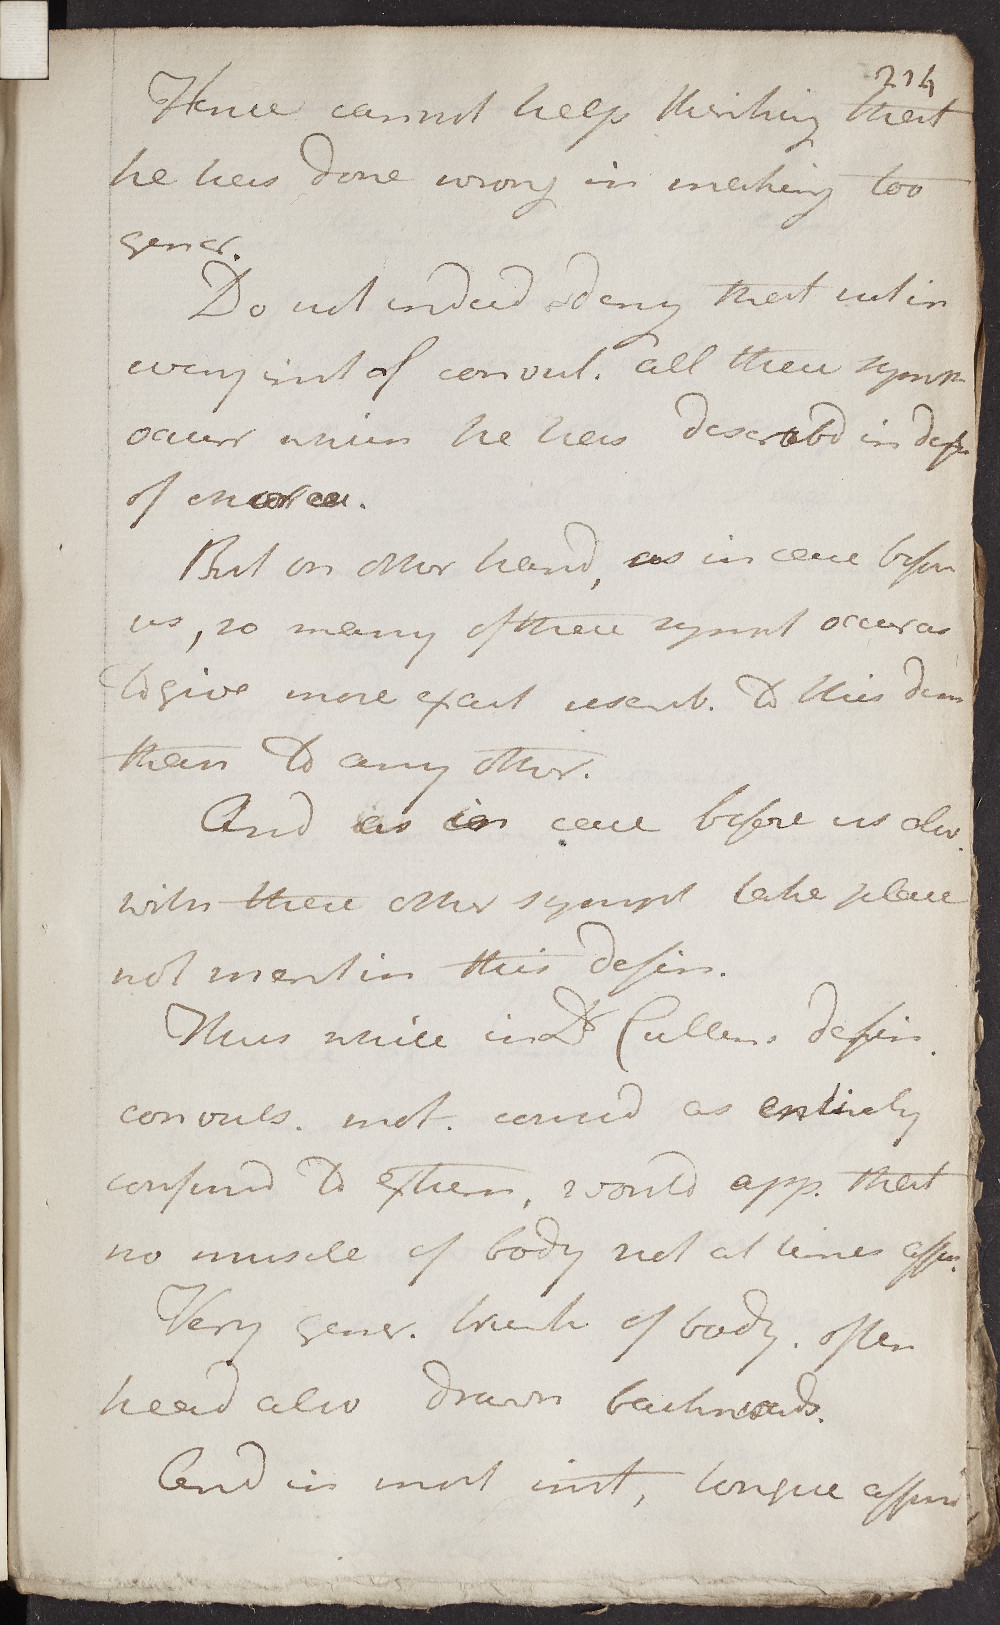 214
Hence cannot help thinking that
he has done wrong in making too
gener.
Do not indeed deny that not in
every inst of convul. all these symp
occurr which he has describd in defin
of chorea.
But on other hand, as in case befor
us, so many of these sympt occur as
to give more exact resemb. to this
than to any other.
And as in case before us also.
with these other sympt take place
not ment in this defin.
Thus while in Dr Cullens defin.
convuls. mot. consid as entirely
confind to extrem, would app. that
no muscle of body not at times affec.
Very gener. trunk of body. often
head also drawn backwards.
And in most inst, tongue affectd